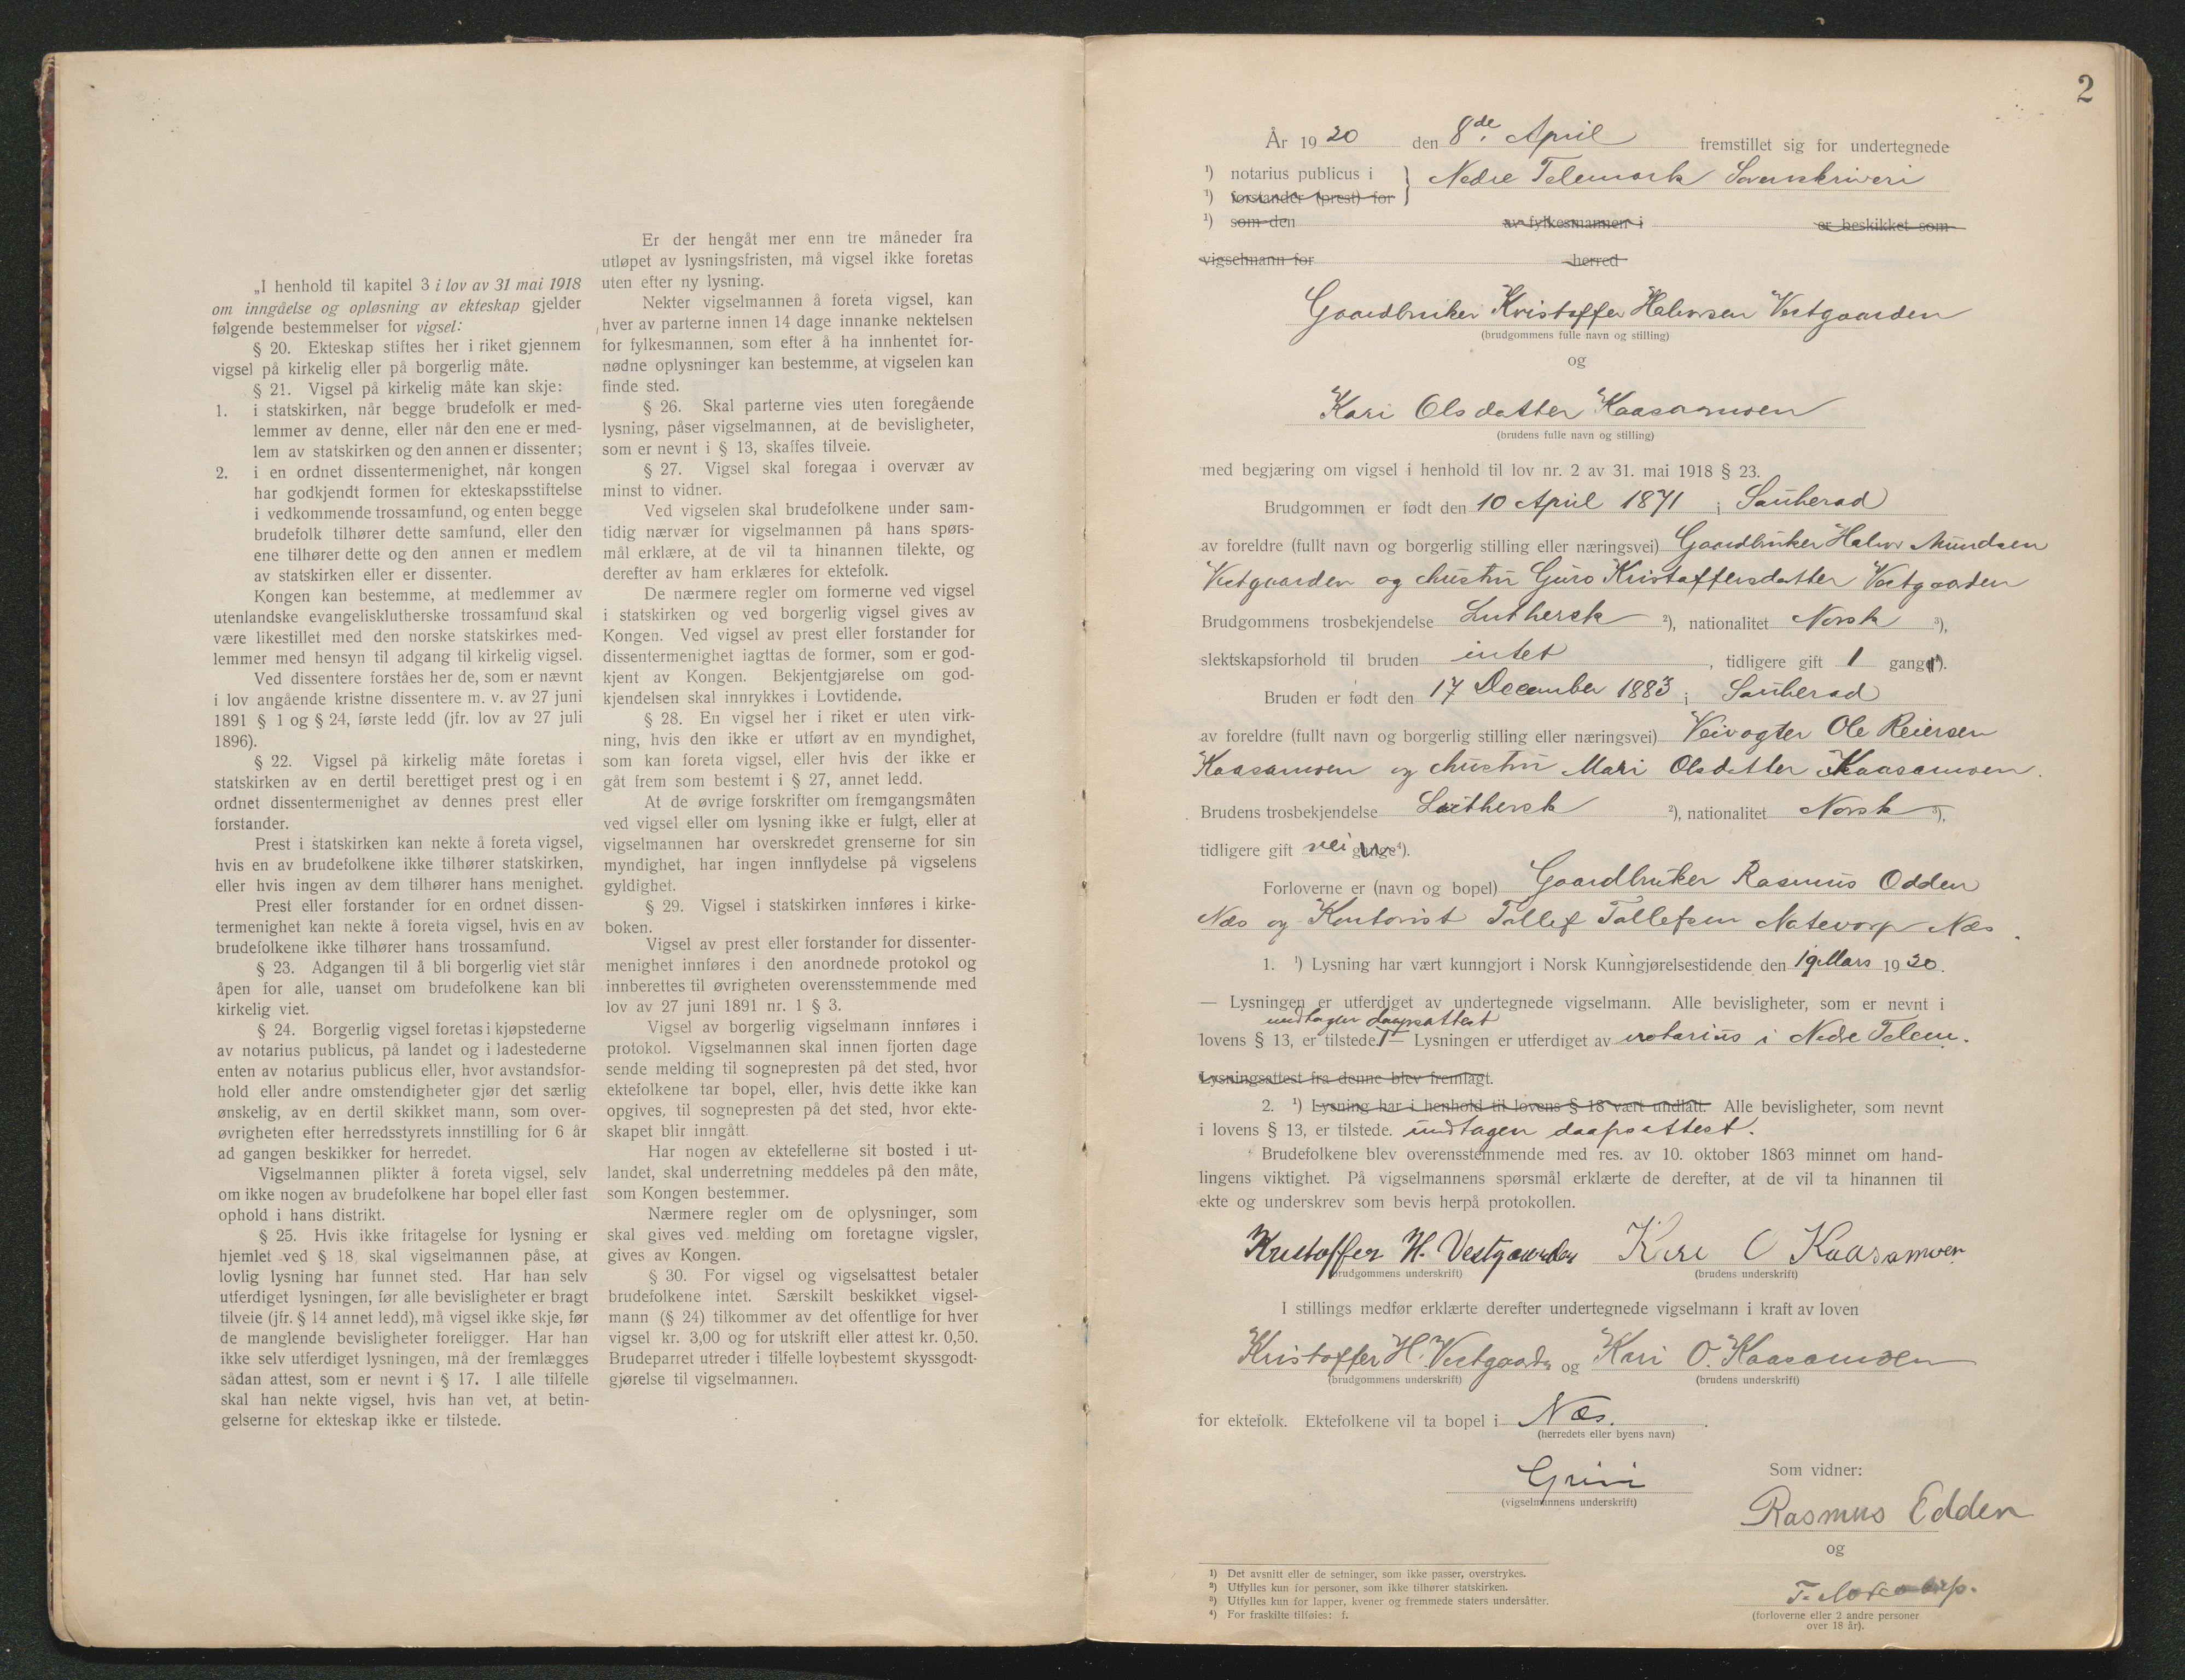 „I henhold til kapitel 3 i lov av 31 mai 1918
om inngåelse og opløsning av ekteskap gjelder
følgende bestemmelser for vigsel:
§ 20. Ekteskap stiftes her i riket gjennem
vigsel på kirkelig eller på borgerlig måte.
§ 21. Vigsel på kirkelig måte kan skje:
1. i statskirken, når begge brudefolk er med-
lemmer av denne, eller når den ene er med-
lem av statskirken og den annen er dissenter;
2. i en ordnet dissentermenighet, når kongen
har godkjendt formen for ekteskapsstiftelse
i vedkommende trossamfund, og enten begge
brudefolk tilhører dette samfund, eller den
ene tilhører dette og den annen er medlem
av statskirken eller er dissenter.
Kongen kan bestemme, at medlemmer av
utenlandske evangelisklutherske trossamfund skal
være likestillet med den norske statskirkes med-
lemmer med hensyn til adgang til kirkelig vigsel.
Ved dissentere forståes her de, som er nævnt
i lov angående kristne dissentere m. v. av 27 juni
1891 § 1 og § 24, første ledd (jfr. lov av 27 juli
1896).
§ 22. Vigsel på kirkelig måte foretas i
statskirken av en dertil berettiget prest og i en
ordnet dissentermenighet av dennes prest eller
forstander.
Prest i statskirken kan nekte å foreta vigsel,
hvis en av brudefolkene ikke tilhører statskirken,
eller hvis ingen av dem tilhører hans menighet.
Prest eller forstander for en ordnet dissen-
termenighet kan nekte å foreta vigsel, hvis en av
brudefolkene ikke tilhører hans trossamfund.
§ 23. Adgangen til å bli borgerlig viet står
åpen for alle, uanset om brudefolkene kan bli
kirkelig viet.
§ 24. Borgerlig vigsel foretas i kjøpstederne
av notarius publicus, på landet og i ladestederne
enten av notarius publicus eller, hvor avstandsfor-
hold eller andre omstendigheter gjør det særlig
ønskelig, av en dertil skikket mann, som over-
øvrigheten efter herredsstyrets innstilling for 6 år
ad gangen beskikker for herredet.
Vigselmannen plikter å foreta vigsel, selv
om ikke nogen av brudefolkene har bopel eller fast
ophold i hans distrikt.
§ 25. Hvis ikke fritagelse for lysning er
hjemlet ved § 18, skal vigselmannen påse, at
lovlig lysning har funnet sted. Har han selv
utferdiget lysningen, før alle bevisligheter er bragt
tilveie (jfr. § 14 annet ledd), må vigsel ikke skje, før
de manglende bevisligheter foreligger. Har han
ikke selv utferdiget lysningen, må der fremlægges
sådan attest, som er nevnt i § 17. I alle tilfelle
skal han nekte vigsel, hvis han vet, at betin-
gelserne for ekteskap ikke er tilstede.
Er der hengåt mer enn tre måneder fra
utløpet av lysningsfristen, må vigsel ikke foretas
uten efter ny lysning.
Nekter vigselmannen å foreta vigsel, kan
hver av parterne innen 14 dage innanke nektelsen
for fylkesmannen, som efter å ha innhentet for-
nødne oplysninger kan bestemme, at vigselen kan
finde sted.
§ 26. Skal parterne vies uten foregående
lysning, påser vigselmannen, at de bevisligheter,
som er nevnt i § 13, skaffes tilveie.
§ 27. Vigsel skal foregaa i overvær av
minst to vidner.
Ved vigselen skal brudefolkene under sam-
tidig nærvær for vigselmannen på hans spørs-
mål erklære, at de vil ta hinannen tilekte, og
derefter av ham erklæres for ektefolk.
De nærmere regler om formerne ved vigsel
i statskirken og ved borgerlig vigsel gives av
Kongen. Ved vigsel av prest eller forstander for
dissentermenighet iagttas de former, som er god-
kjent av Kongen. Bekjentgjørelse om god-
kjendelsen skal innrykkes i Lovtidende.
§ 28. En vigsel her i riket er uten virk-
ning, hvis den ikke er utført av en myndighet,
som kan foreta vigsel, eller hvis der ikke er
gåt frem som bestemt i § 27, annet ledd.
At de øvrige forskrifter om fremgangsmåten
ved vigsel eller om lysning ikke er fulgt, eller at
vigselmannen har overskredet grenserne for sin
myndighet, har ingen innflydelse på vigselens
gyldighet.
§ 29. Vigsel i statskirken innføres i kirke-
boken.
Vigsel av prest eller forstander for dissenter-
menighet innføres i den anordnede protokol og
innberettes til øvrigheten overensstemmende med
lov av 27 juni 1891 nr. 1 § 3.
Vigsel av borgerlig vigselmann innføres i
protokol. Vigselmannen skal innen fjorten dage
sende melding til sognepresten på det sted, hvor
ektefolkene tar bopel, eller, hvis dette ikke kan
opgives, til sognepresten på det sted, hvor ekte-
skapet blir inngått.
Har nogen av ektefellerne sit bosted i ut-
landet, skal underretning meddeles på den måte,
som Kongen bestemmer.
Nærmere regler om de oplysninger, som
skal gives ved melding om foretagne vigsler,
gives av Kongen.
§ 30. For vigsel og vigselsattest betaler
brudefolkene intet. Særskilt beskikket vigsel-
mann (§ 24) tilkommer av det offentlige for hver
vigsel kr. 3,00 og for utskrift eller attest kr. 0,50.
Brudeparret utreder i tilfelle lovbestemt skyssgodt-
gjørelse til vigselmannen.
2
År 1920 den 8de April fremstillet sig for undertegnede
¹) notarius publicus i } Nedre Telemark Sorenskriveri
¹) forstander (prest) for
¹) som den av fylkesmannen i er beskikket som
vigselmann for herred
Gaardbruker Kristoffer Halvorsen Vestgaarden
(brudgommens fulle navn og stilling)
og
Kari Olsdatter Kaasamoen
(brudens fulle navn og stilling)
med begjæring om vigsel i henhold til lov nr. 2 av 31. mai 1918 § 23.
Brudgommen er født den 10 April 1871 i Sauherad
av foreldre (fullt navn og borgerlig stilling eller næringsvei) Gaardbruker Halvor Amundsen
Vestgaarden og hustru Guro Kristoffersdatter Vestgaarden
Brudgommens trosbekjendelse Luthersk ²), nationalitet Norsk ³),
slektskapsforhold til bruden intet, tidligere gift 1 gang ⁴).
Bruden er født den 17 December 1883 i Sauherad
av foreldre (fullt navn og borgerlig stilling eller næringsvei) Veivogter Ole Reiersen
Kaasamoen og hustru Mari Olsdatter Kaasamoen.
Brudens trosbekjendelse Luthersk ²), nationalitet Norsk ³),
tidligere gift nei gange⁴).
Forloverne er (navn og bopel) Gaardbruker Rasmus Odden
Næs og Kontorist Tollef Tollefsen Notevarp Næs.
1. ¹) Lysning har vært kunngjort i Norsk Kunngjørelsestidende den 19 Mars 1920.
— Lysningen er utferdiget av undertegnede vigselmann. Alle bevisligheter, som er nevnt i
undtagen daapsattest
lovens § 13, er tilstede. — Lysningen er utferdiget av notarius i Nedre Telem.
Lysningsattest fra denne blev fremlagt.
2. ¹) Lysning har i henhold til lovens § 18 vært undlatt. Alle bevisligheter, som nevnt
i lovens § 13, er tilstede. undtagen daapsattest.
Brudefolkene blev overensstemmende med res. av 10. oktober 1863 minnet om hand-
lingens viktighet. På vigselmannens spørsmål erklærte de derefter, at de vil ta hinannen til
ekte og underskrev som bevis herpå protokollen.
Kristoffer H. Vestgaarden Kari O Kaasamoen
(brudgommens underskrift) (brudens underskrift)
I stillings medfør erklærte derefter undertegnede vigselmann i kraft av loven
Kristoffer H. Vestgaarden og Kari O. Kaasamoen
(brudgommens underskrift) (brudens underskrift)
for ektefolk. Ektefolkene vil ta bopel i Næs.
(herredets eller byens navn)
Grini
(vigselmannens underskrift)
Som vidner:
Rasmus Odden
og
(forloverne eller 2 andre personer
over 18 år).
¹) Det avsnitt eller de setninger, som ikke passer, overstrykes.
²) Utfylles kun for personer, som ikke tilhører statskirken.
³) Utfylles kun for lapper, kvener og fremmede staters undersåtter.
⁴) For fraskilte tilføies: f.